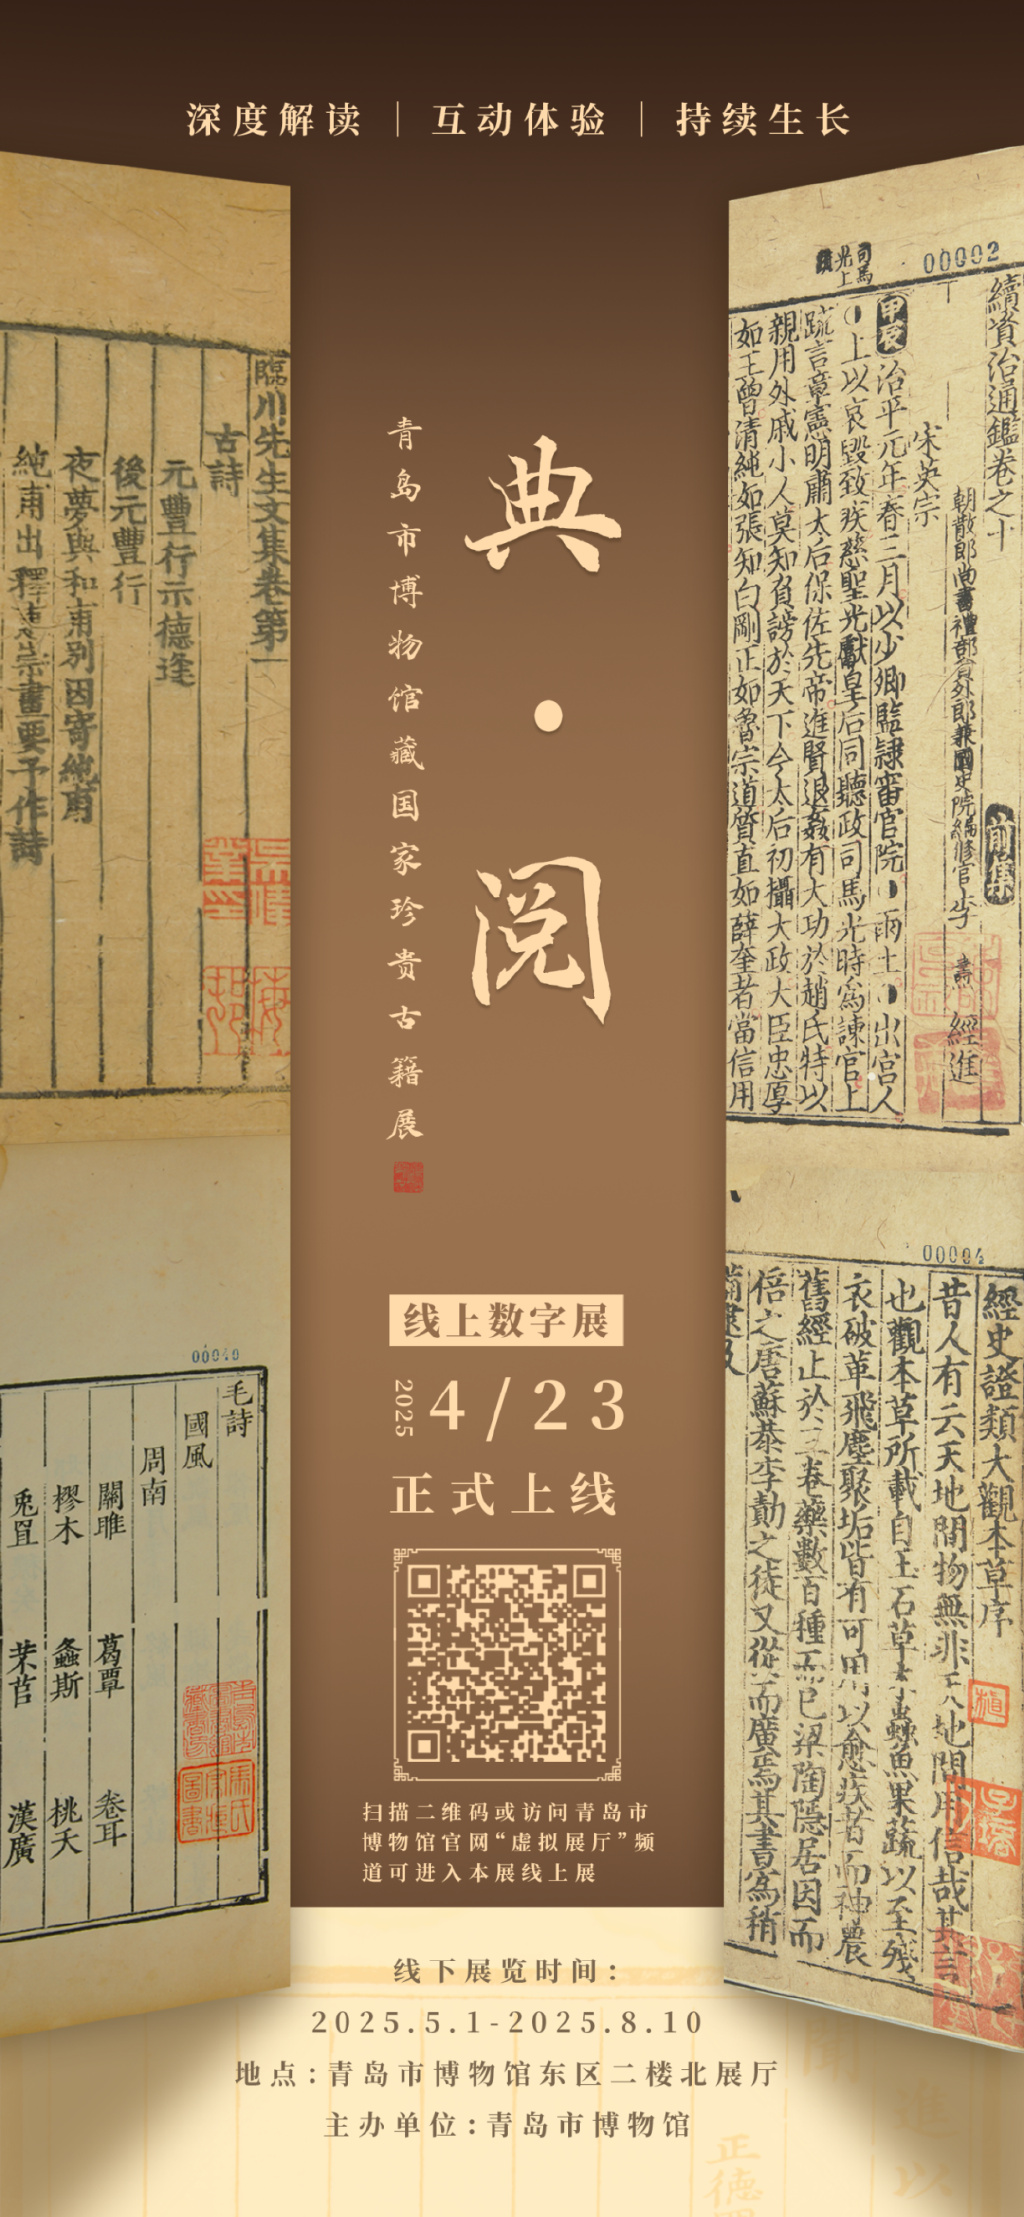 深度解读｜互动体验｜持续生长
典·阅
青岛市博物馆藏国家珍贵古籍展
线上数字展
2025 4/23
正式上线
扫描二维码或访问青岛市
博物馆官网“虚拟展厅”频
道可进入本展线上展
线下展览时间：
2025.5.1-2025.8.10
地点：青岛市博物馆东区二楼北展厅
主办单位：青岛市博物馆
臨川先生文集卷第一
古詩
元豐行示德逢
後元豐行
夜夢與和甫別因寄純甫
純甫出釋惠崇畫要予作詩
00040
毛詩
國風
周南
關雎 葛覃 卷耳
樛木 螽斯 桃夭
兎罝 芣苢 漢廣
00002
司馬光上
續資治通鑑卷之十
前集
朝散郎尚書禮部員外郎兼國史院編修官李燾 經進
宋英宗
甲辰 治平元年春三月以少卿監隸審官院 雨土 出宮人
上以哀毀致疾慈聖光獻皇后同聽政司馬光時爲諫官上
疏言章憲明肅太后保佐先帝進賢退姦有大功於趙氏特以
親用外戚小人莫知負謗於天下今太后初攝大政大臣忠厚
如王曾清純如張知白剛正如魯宗道質直如薛奎者當信用
00004
經史證類大觀本草序
昔人有云天地間物無非天地間用信哉其言
也觀本草所載自玉石草木蟲魚果蔬以至殘
衣破革飛塵聚垢皆有可用以愈疾者而神農
舊經止於三卷藥數百種而已梁陶隱居因而
倍之唐蘇恭李勣之徒又從而廣焉其書爲稍
正德
進以